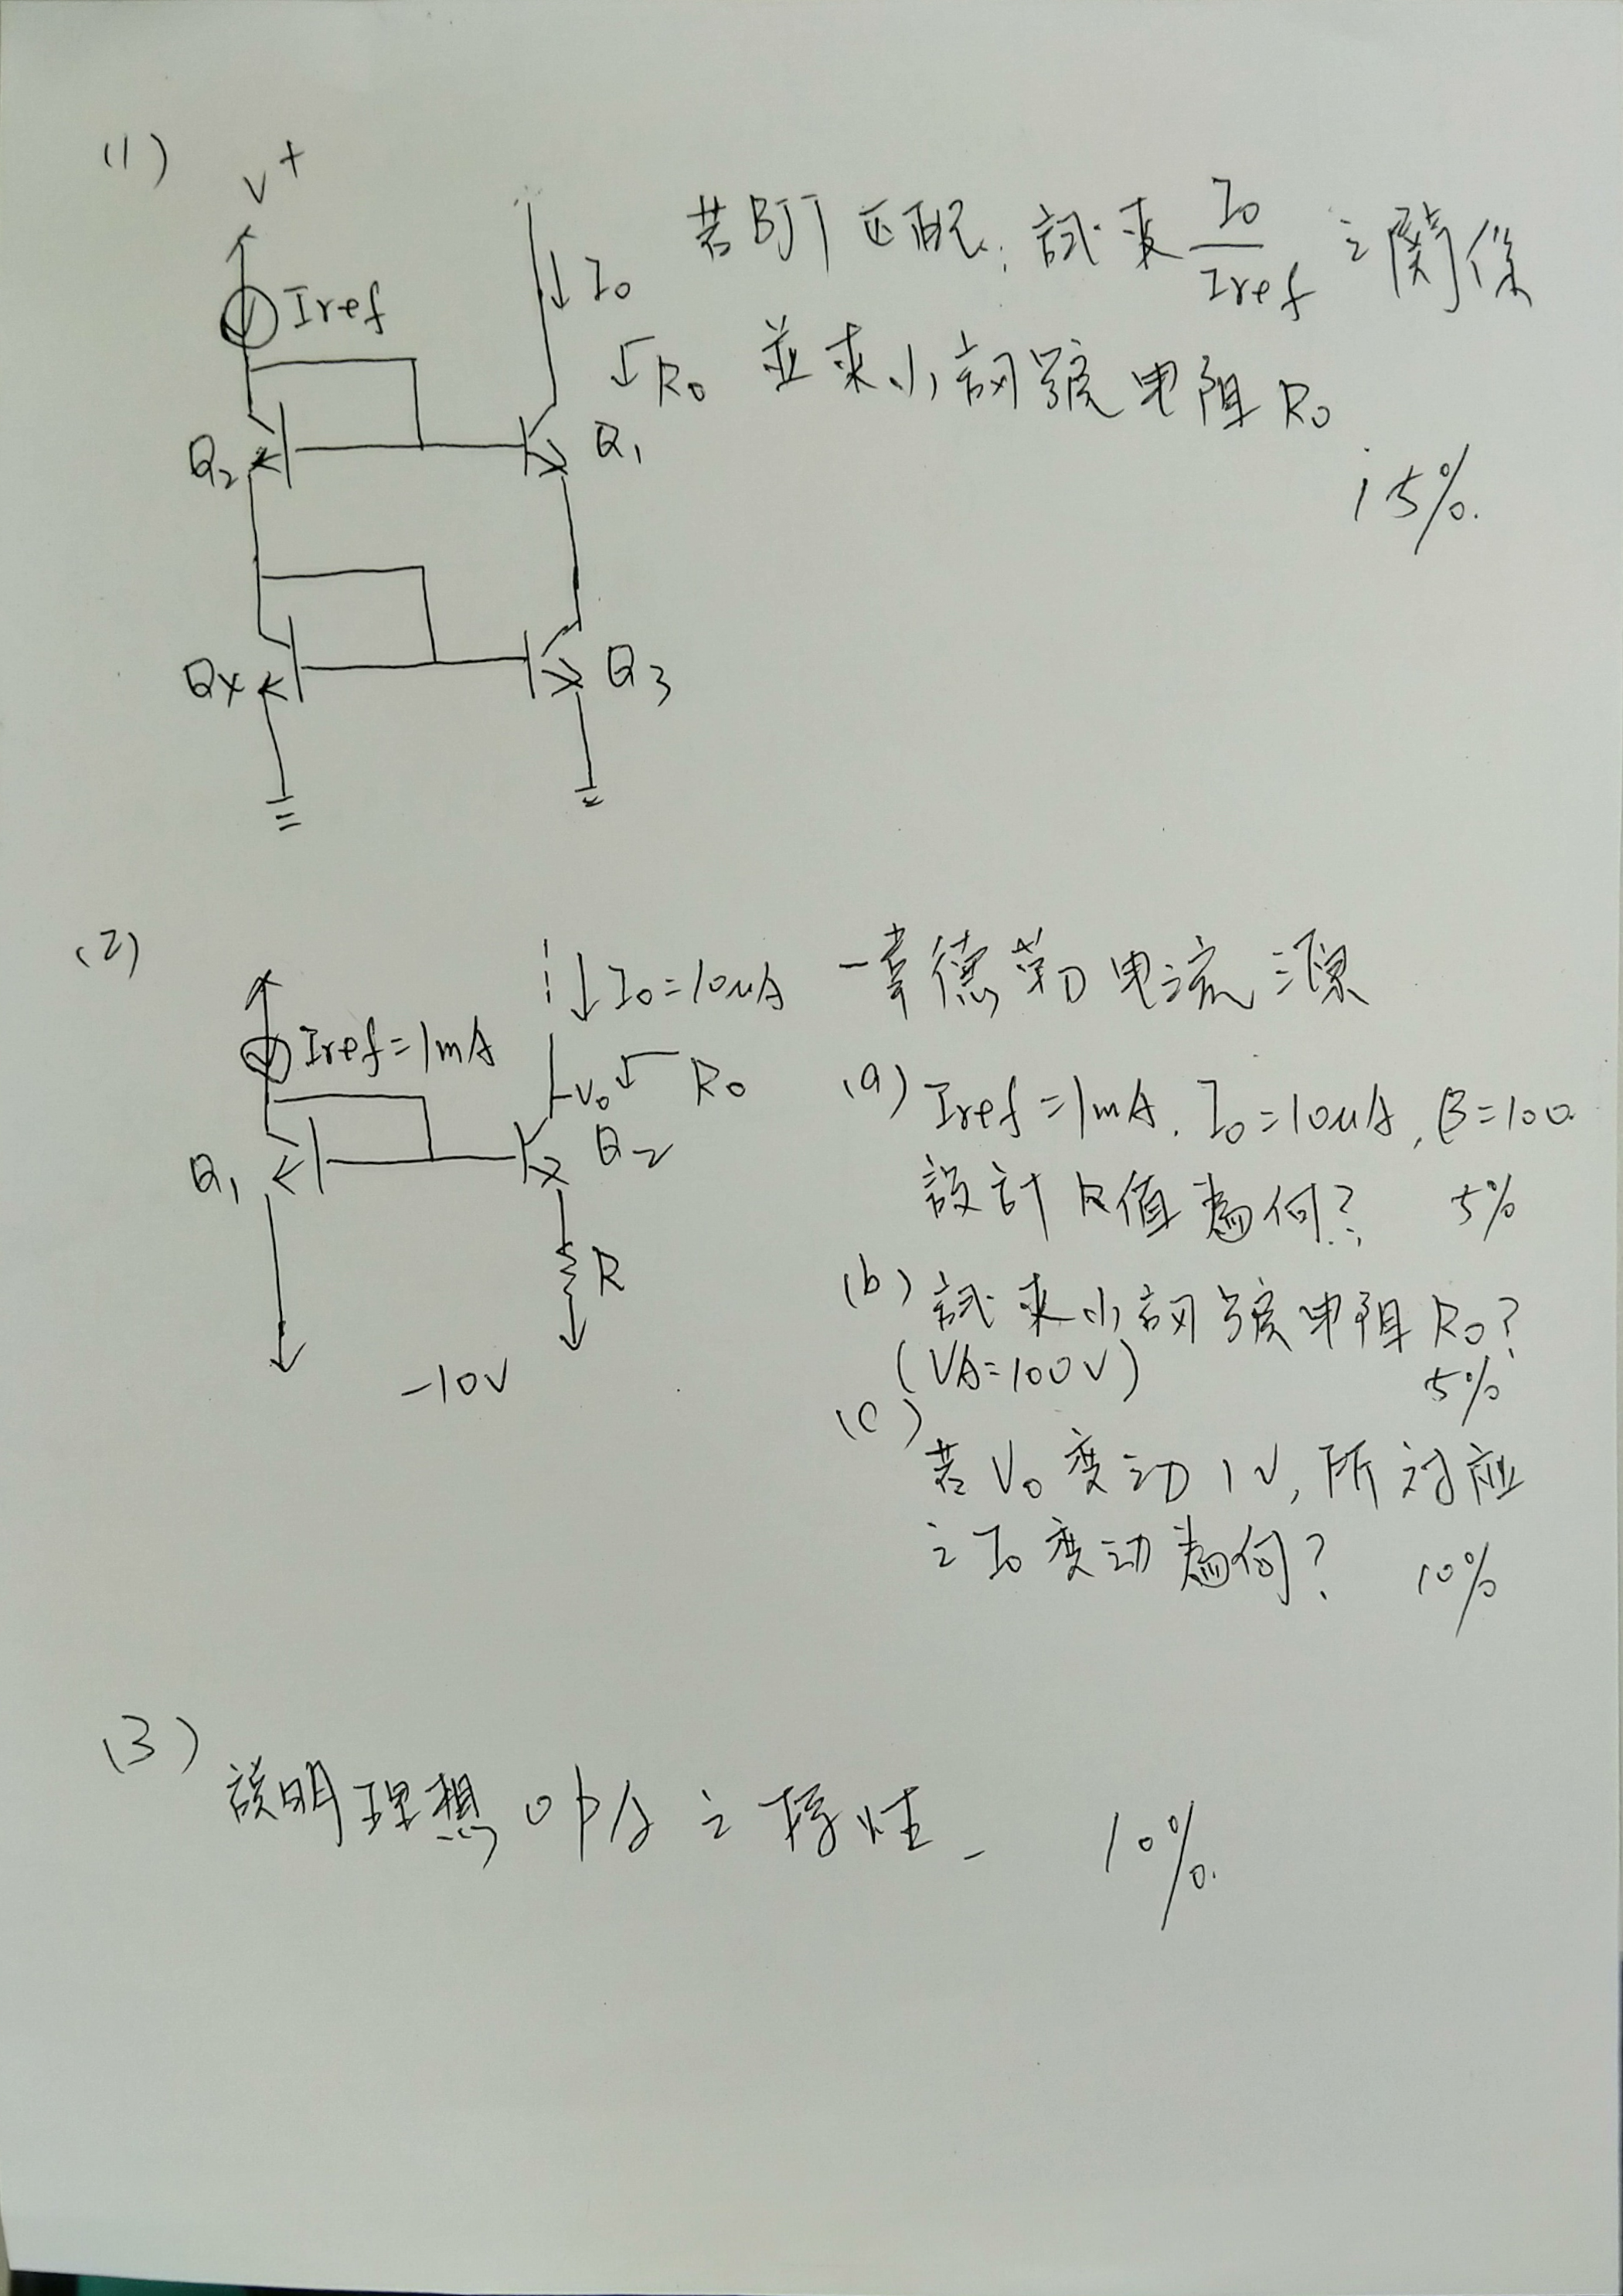 (1)
V+
Iref
Io
Ro
Q2
Q1
Q4
Q3
若BJT匹配,試求 Io/Iref 之關係
並求小訊號电阻Ro
15%.
(2)
Iref=1mA
Io=10uA
Vo
Ro
Q1
Q2
R
-10V
一韋德勒电流源
(a) Iref=1mA, Io=10uA, β=100.
設計R值為何? 5%
(b) 試求小訊號电阻Ro?
(VA=100V) 5%
(c)
若Vo变动1V,所対应
之Io变动為何? 10%
(3)
説明理想OPA之特性. 10%.